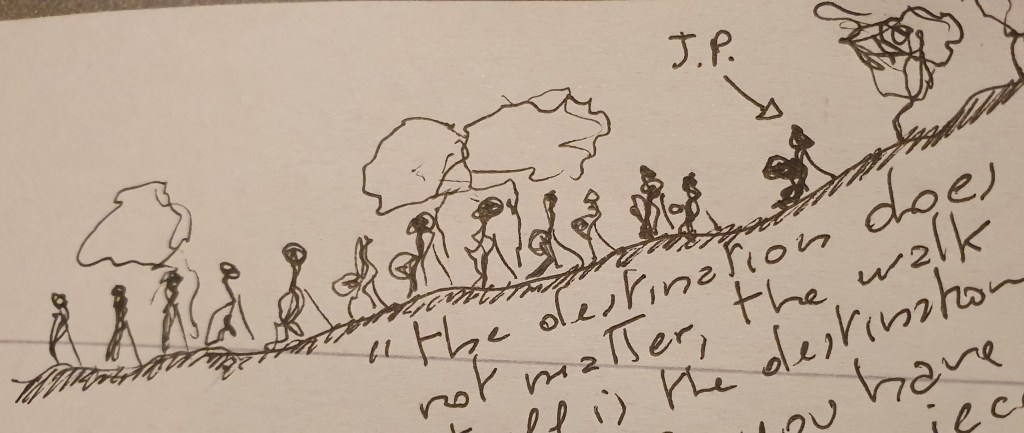 J.P.
"the destination does
not matter, the walk
itself is the destination
you have